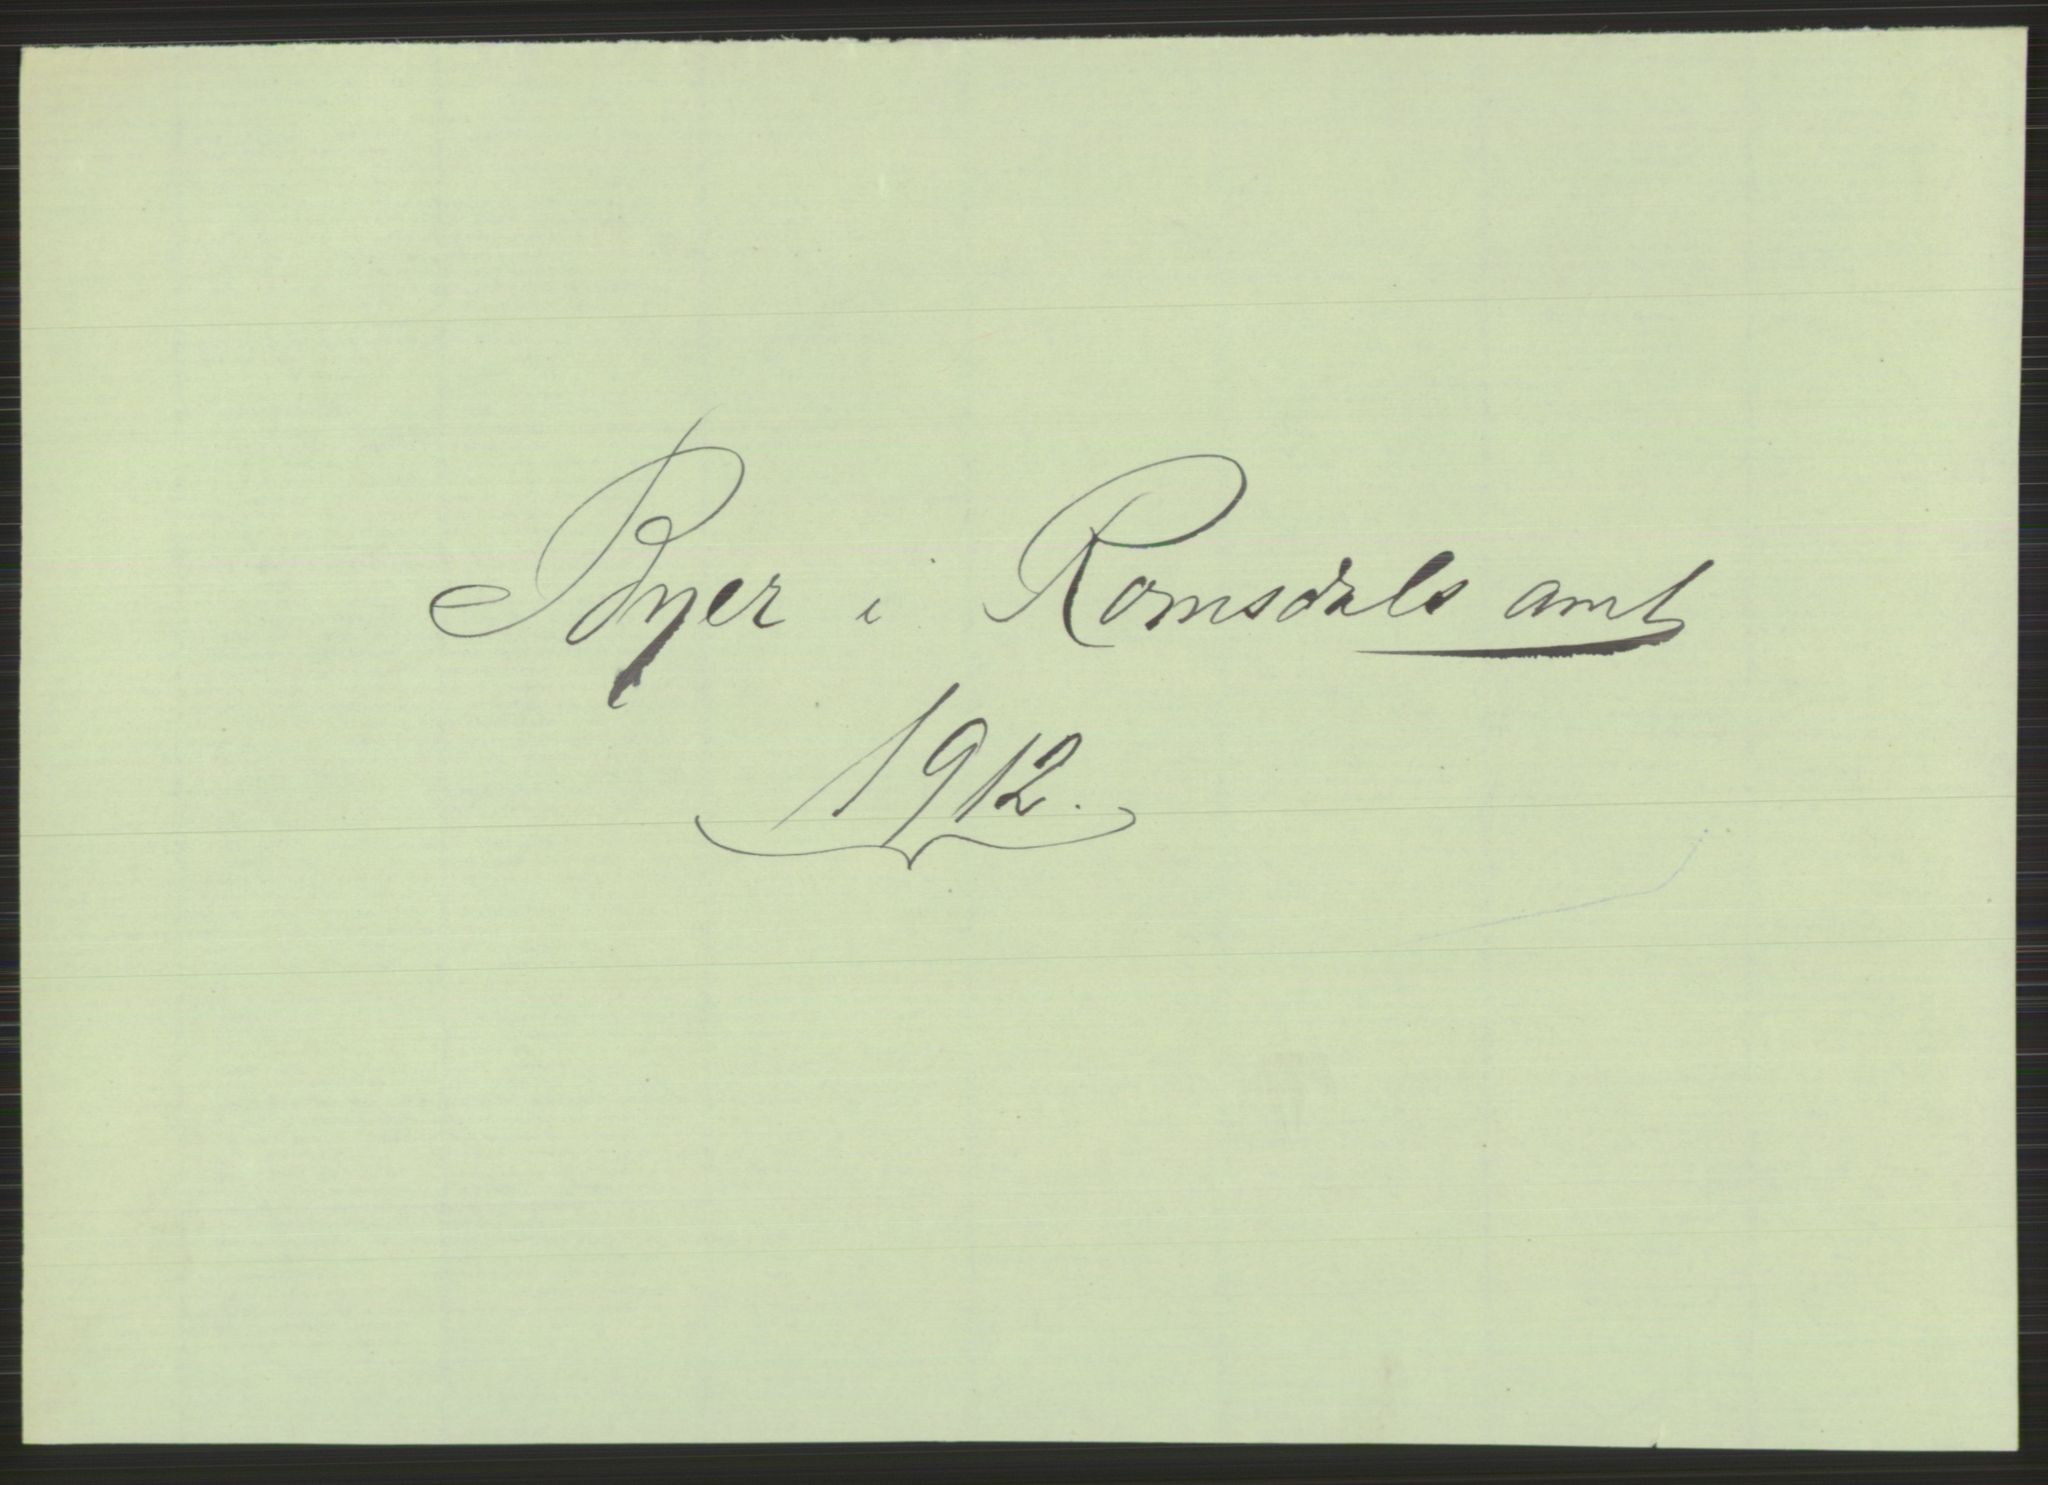 Byer i Romsdals amt
1912.